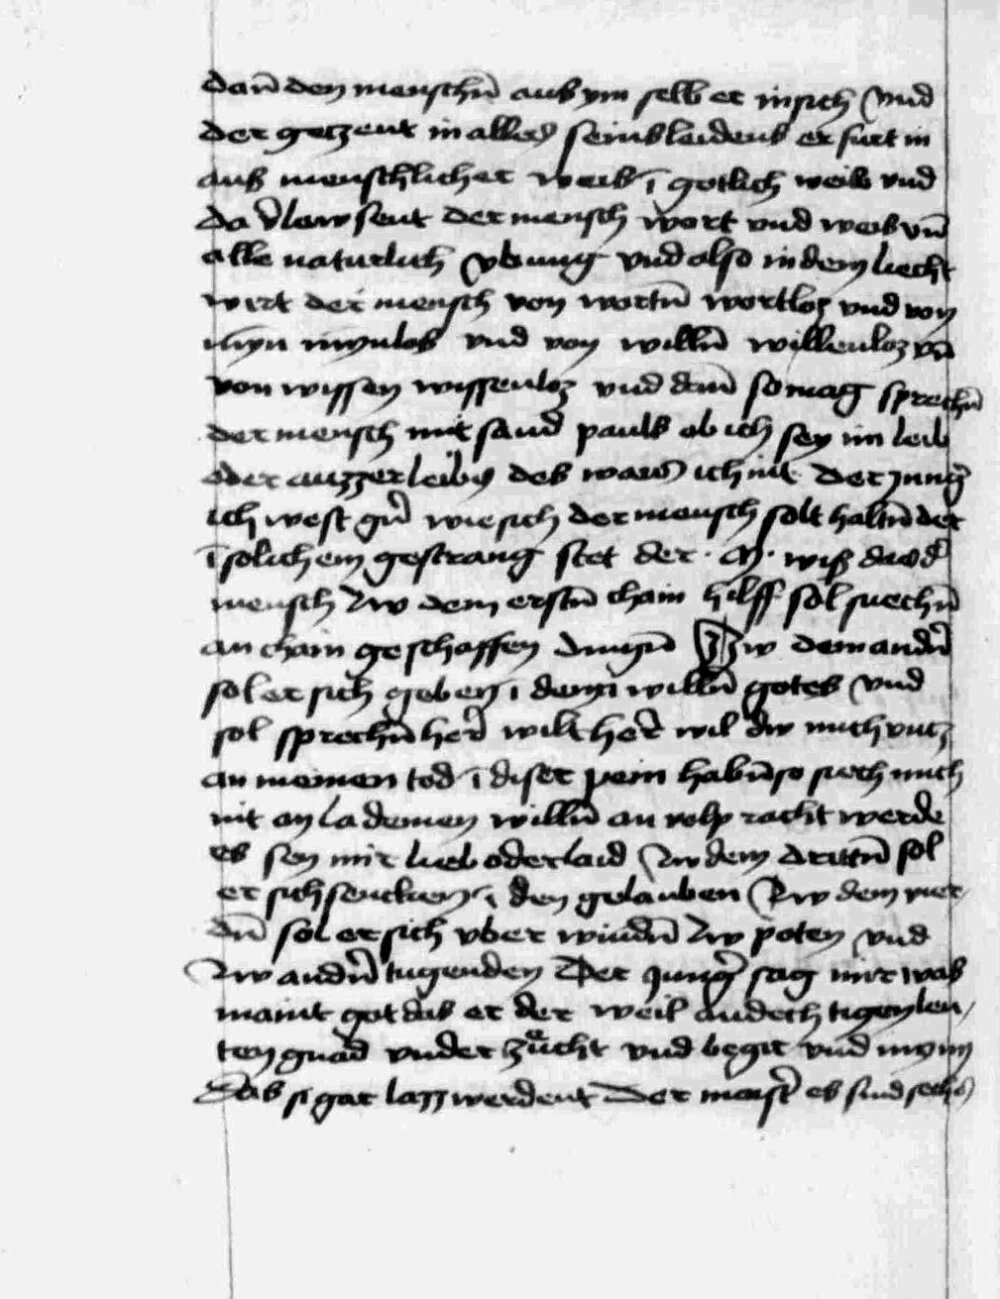 dan̄ den menschn̄ aus ym selb er in sich Vnd
der getzent in alles seins leidens er furt in
aus menschlicher weis ī gotlich weis vnd
da v̄lewsent der mensch wort vnd weis vn̄
alle naturlich vbung vnd also in dem liecht
wirt der mensch von wortn̄ wortloz vnd von
mӱn mӱnlos vnd von willn̄ willenloz vn̄
von wissen wissenloz vnd dan̄ so mag sprechn̄
der mensch mit sand pauls ob ich sey im leib
oder auzzer leibs des wais ich nit Der junḡ
ich west gn̄ wie sich der mensch solt haltn̄ der
ī solichem gestrang stet der · M · wiß das d̄
mensch zw dem erstn̄ chain hilff sol suechn̄
an chain geschaffen dingn̄ Zw dem andn̄
sol er sich geben ī dem willn̄ gotes Vnd
sol sprechn̄ her̄ wilt her̄ wil dw mich vntz
an meinen tod ī diser pein habn̄ so siech mich
nit an la deinen willn̄ an volpracht werde
es sey mir lieb oder laid Zw dem drittn̄ sol
er sich sencken ī den gelauben Zw dem vier
dn̄ sol er sich vber windn̄ zw peten vnd
zw andn̄ tugenden Der Junḡ sag mir was
maint got das er der weil andechtigen leu
ten gnad vnder zuͤcht vnd begir vnd mynn
Das si gar lazz werdent Der maist̄ es sind sechs